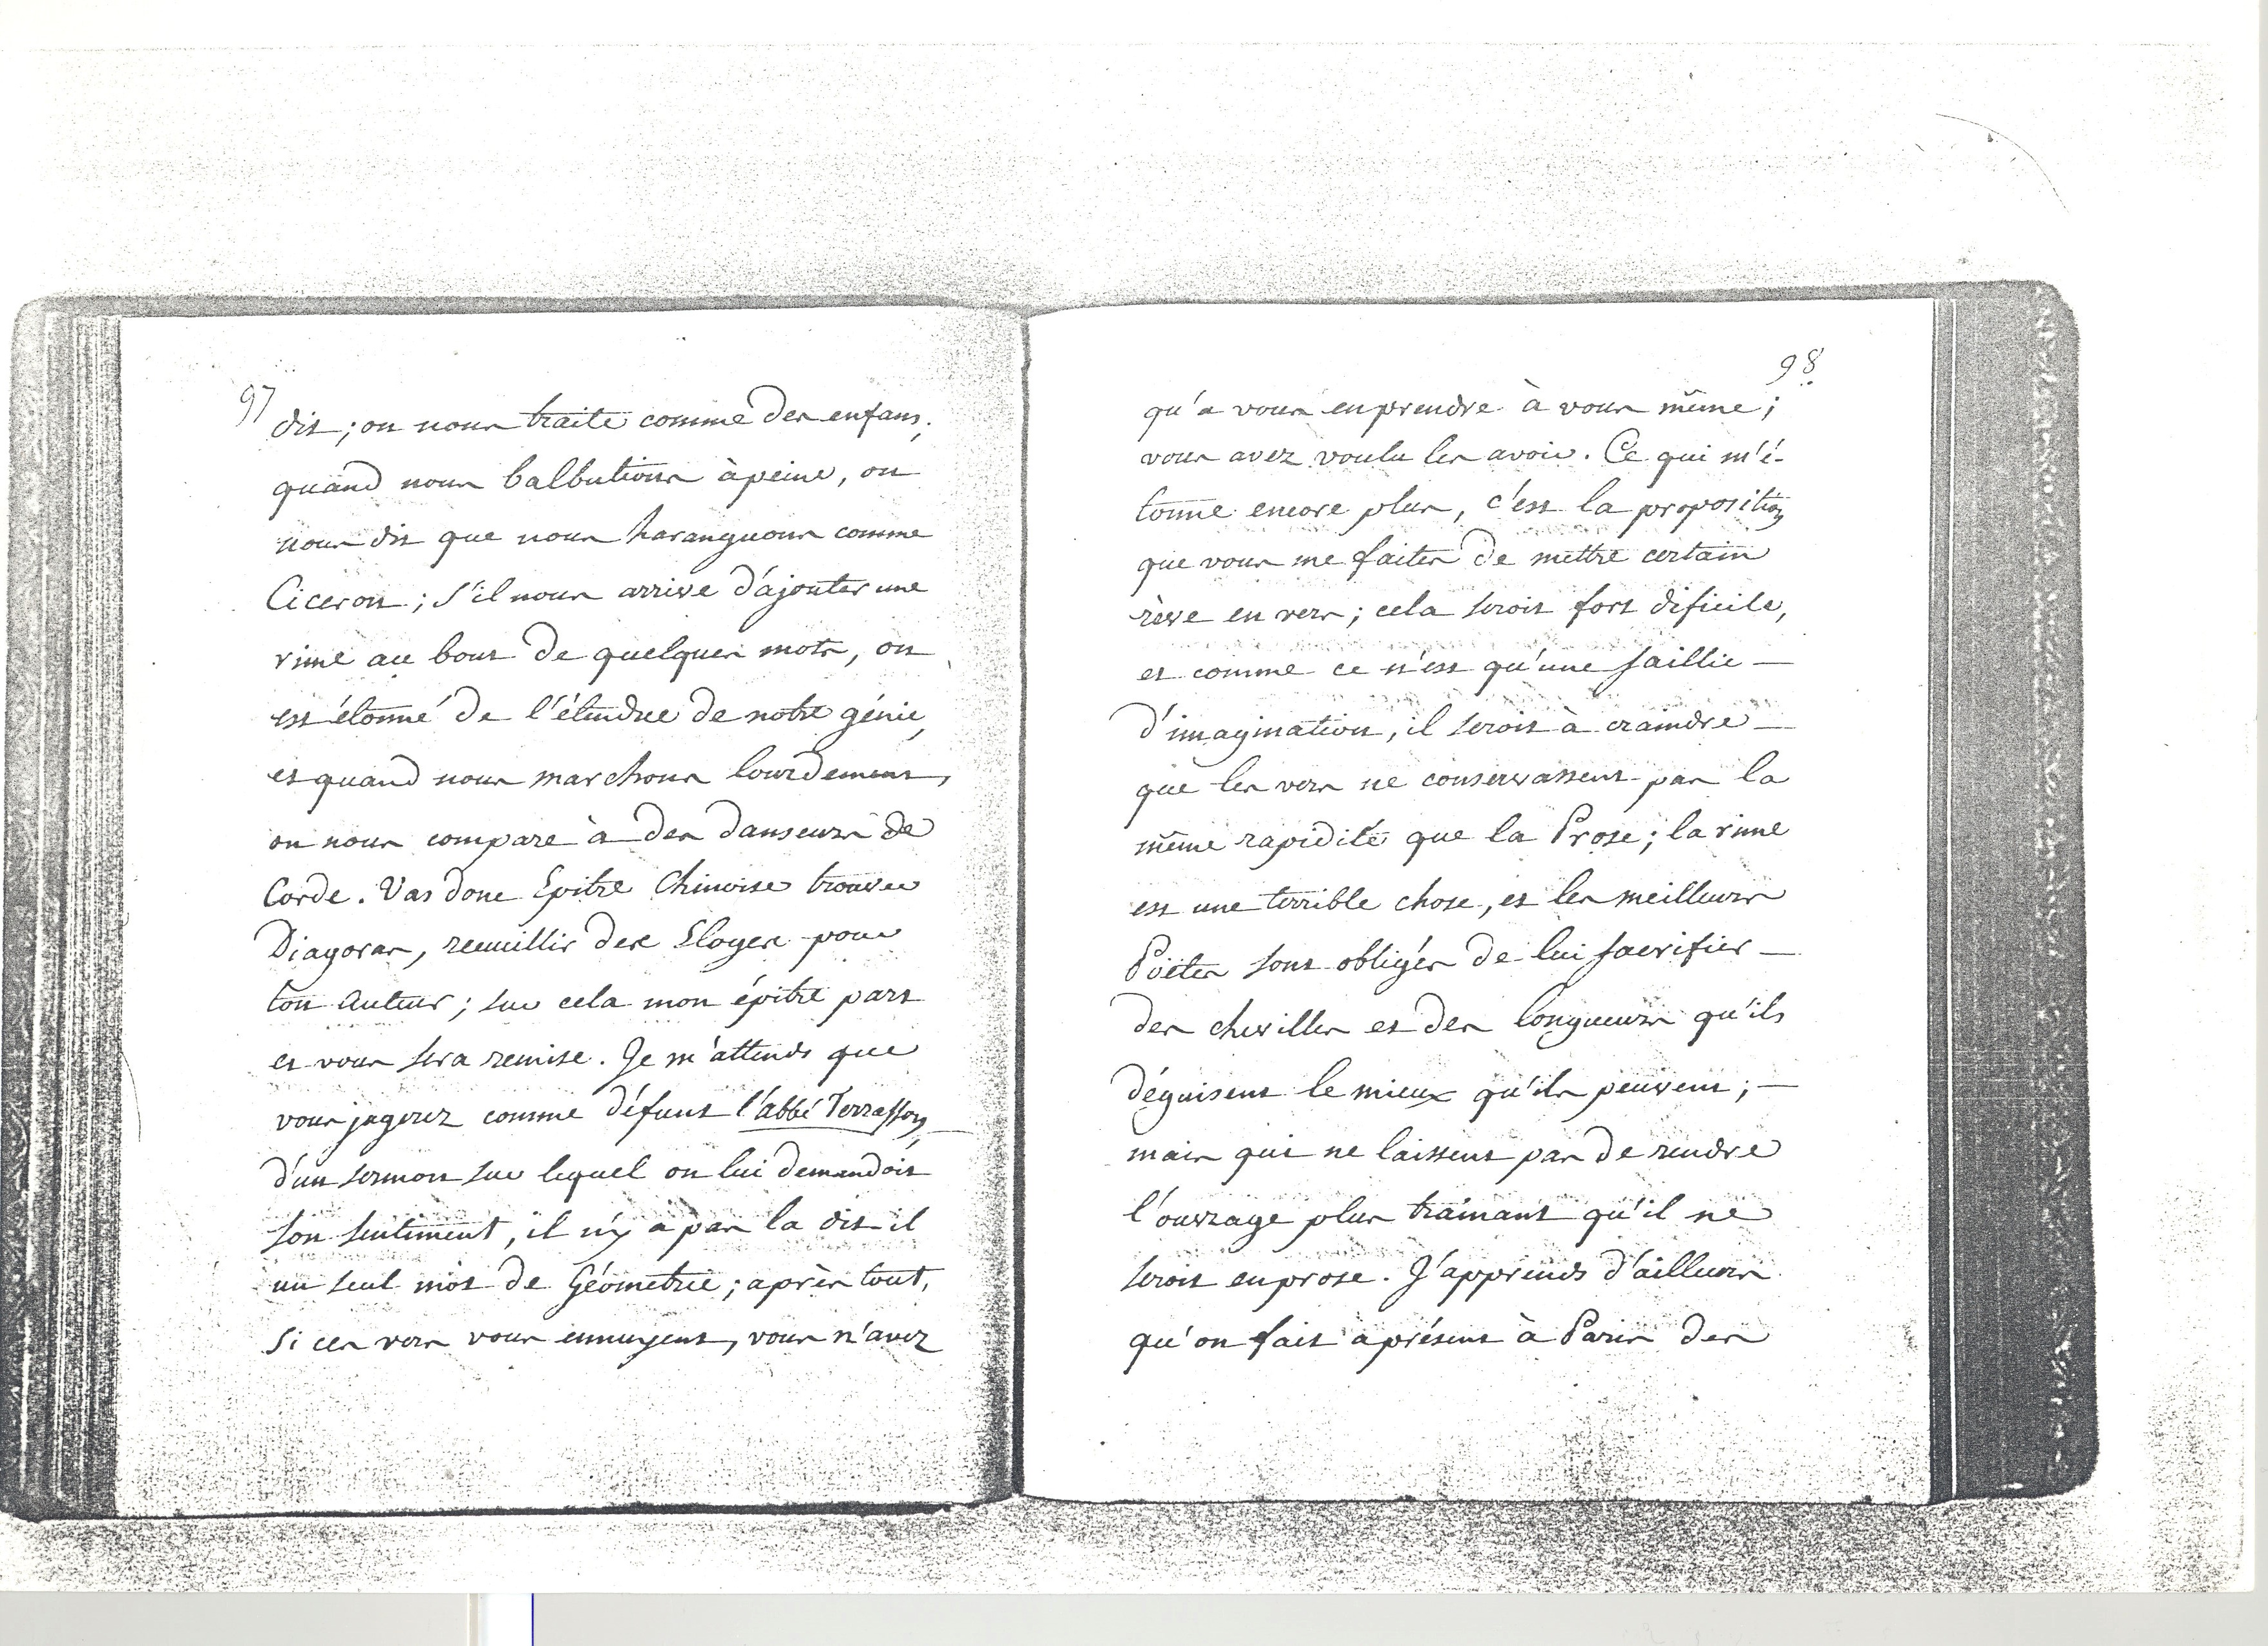 97
dit; on nous traite comme des enfans,
quand nous balbutions àpeine, on
nous dit que nous haranguons comme
Ciceron; s'il nous arrive d'ajouter une
rime au bout de quelques mots, on
est étonné de l'étendue de notre génie,
et quand nous marchons lourdement,
on nous compare à des danseurs de
Corde. Vas donc Epitre Chinoise trouver
Diagoras, recuillir des Eloges pour
ton Auteur; sur cela mon épitre part
et vous sera remise. Je m'attends que
vous jugerez comme défunt l'abbé Terrasson,
d'un sermon sur lequel on lui demandoit
son sentiment, il n'y a pas la dit il
un seul mot de Géometrie; après tout,
Si ces vers vous ennuyent, vous n'avez
98
qu'a vous enprendre à vous même;
vous avez voulu les avoir. Ce qui m'é-
tonne encore plus, c'est la proposition
que vous me faites de mettre certain
rève en vers; cela seroit fort dificile,
et comme ce n'est qu'une saillie
d'imagination, il seroit à craindre
que les vers ne conservassent pas la
même rapidité que la Prose; la rime
est une terrible chose, et les meilleurs
Poëtes sont obligés de lui sacrifier
des chevilles et des longueurs qu'ils
déguisent le mieux qu'ils peuvent;
mais qui ne laissent pas de rendre
l'ouvrage plus trainant qu'il ne
seroit enprose. J'apprends d'ailleurs
qu'on fait aprésent à Paris des